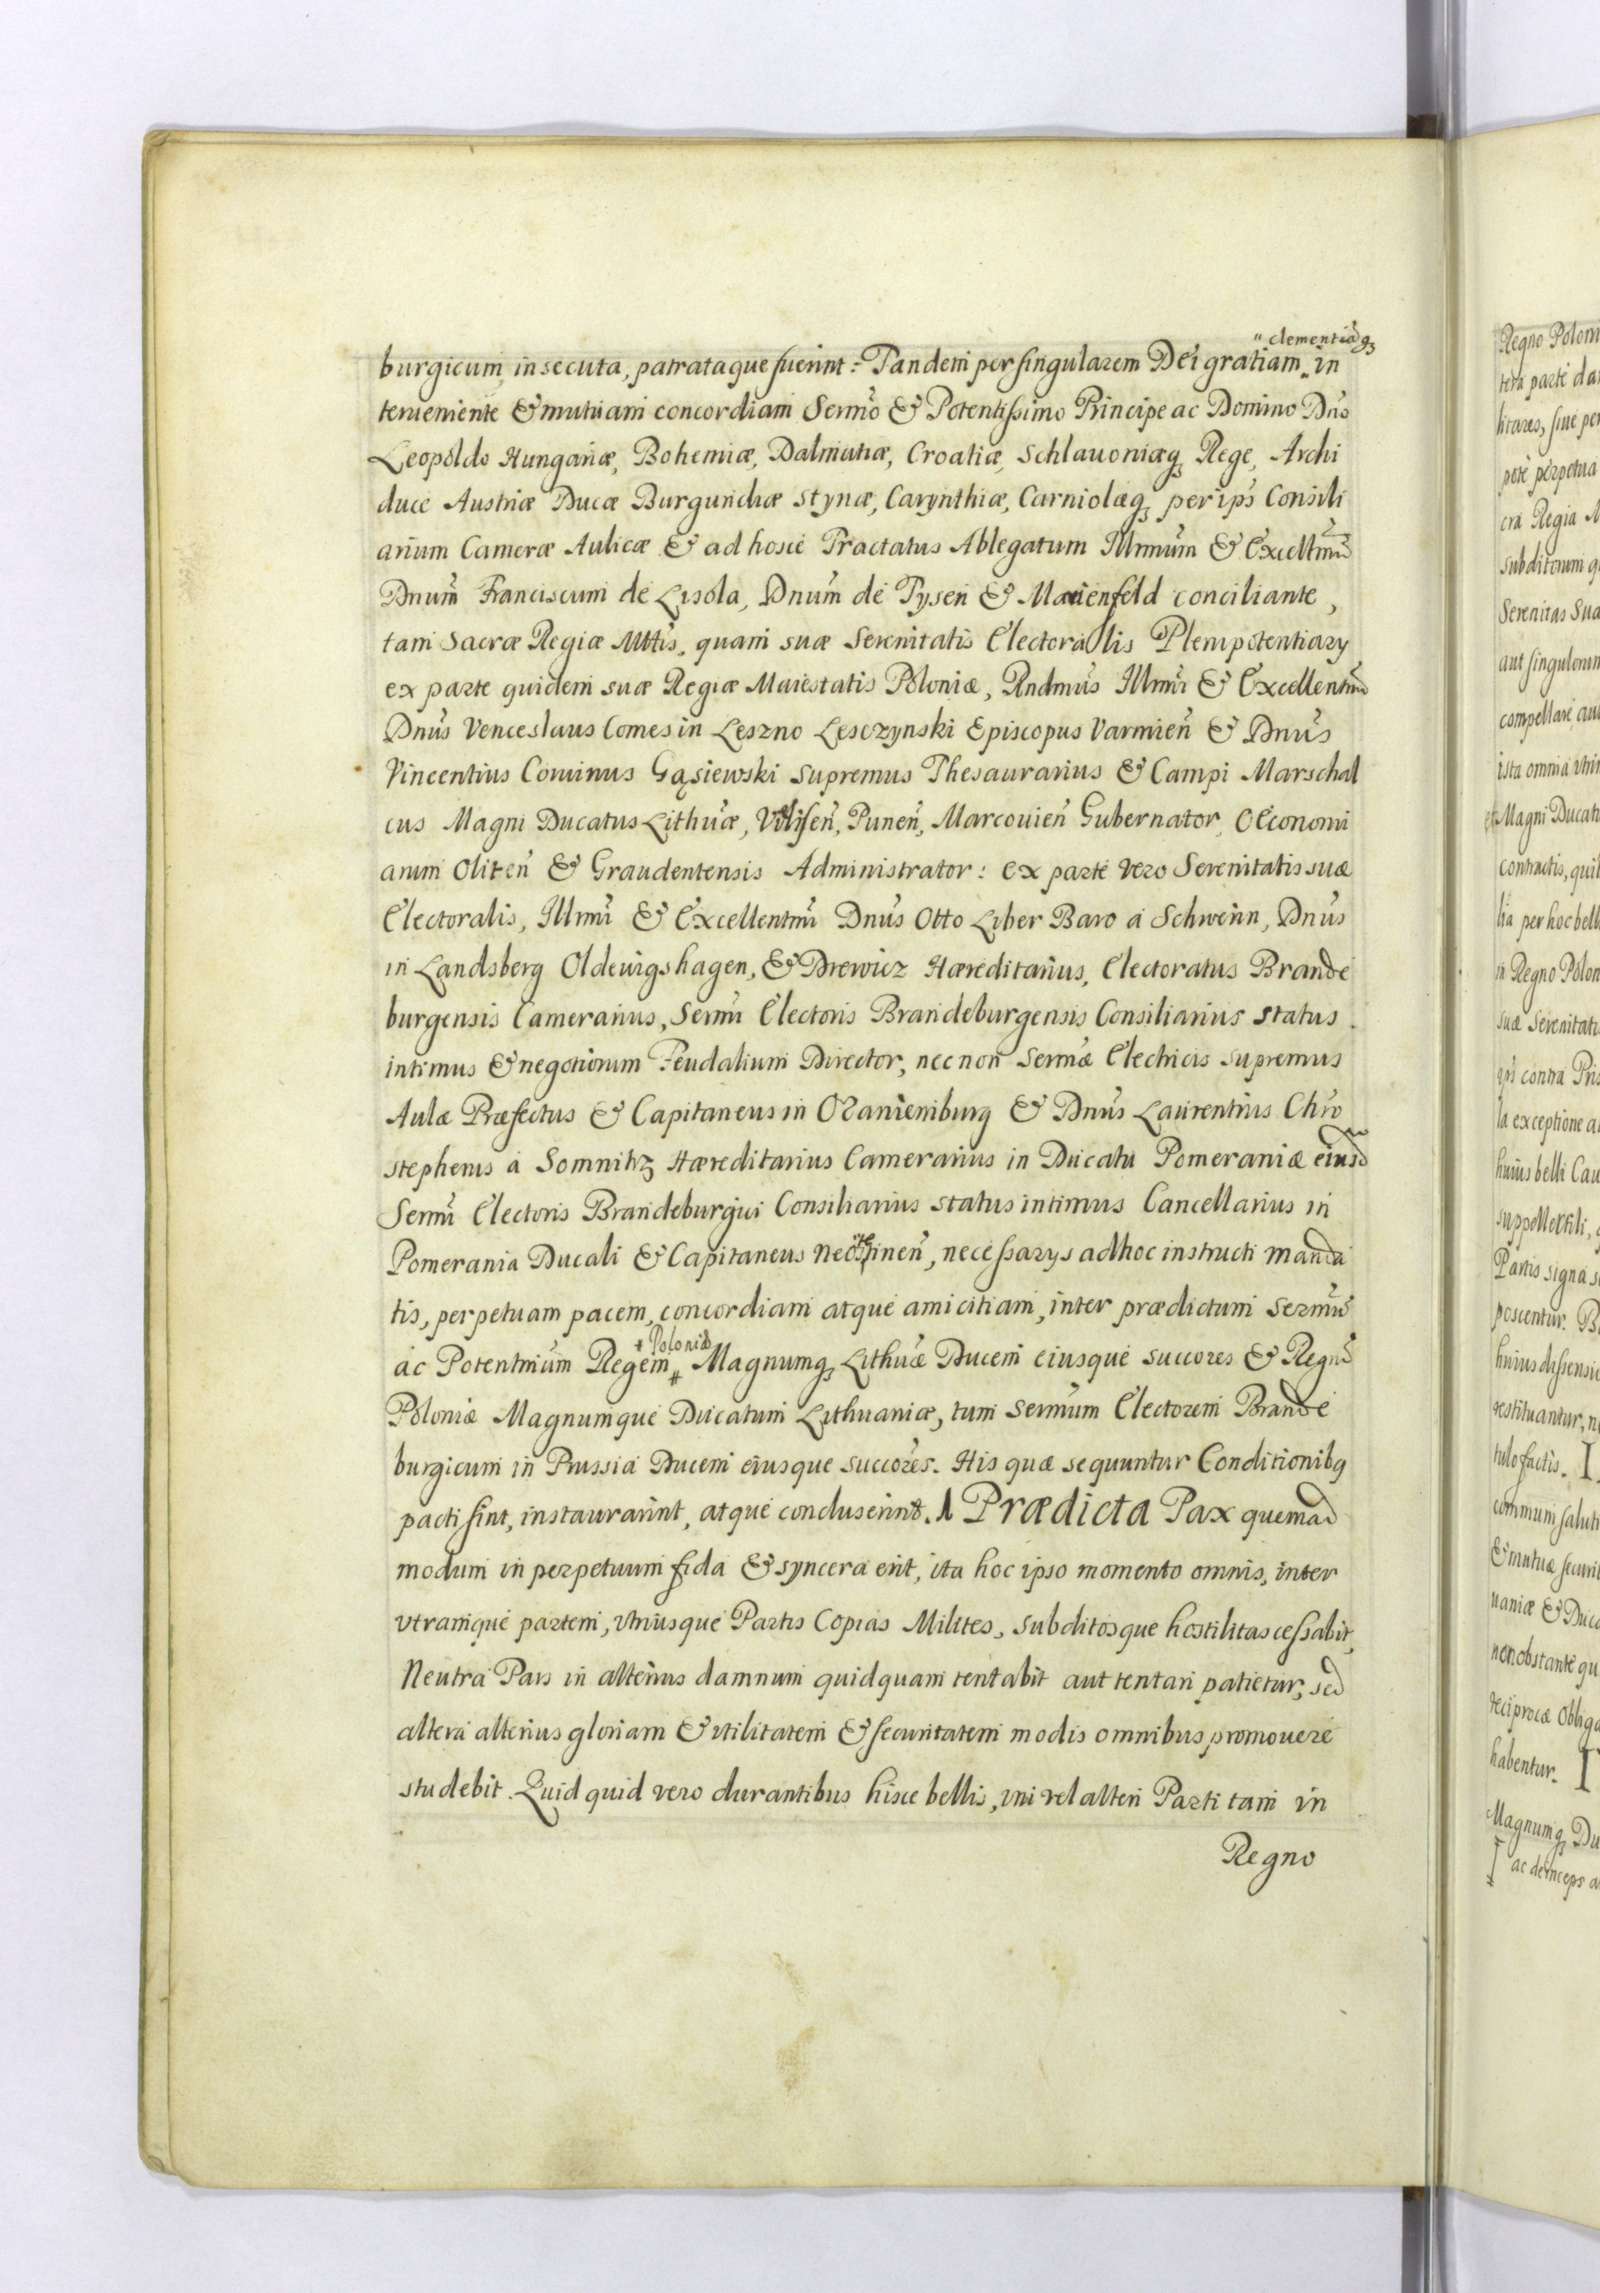 burgicum insecuta, patrataque fuerint: Tandem per singularem Dei gratiam clementiaq; in
terueniente & mutuam concordiam Sermo & Potentissimo Principe ac Domino Dno
Leopoldo Hungariæ, Bohemiæ, Dalmatiæ, Croatiæ, Schlauoniæq; Rege, Archi
duce Austriæ Ducæ Burgundiæ Styriæ, Carynthiæ, Carniolæq; per ips Consili
arium Cameræ Aulicæ & ad hosce Tractatus Ablegatum Illrmum & Excellmum
Dnum Franciscum de Lisola, Dnum de Tysen & Marienfeld conciliante,
tam Sacræ Regiæ Mttis, quam suæ Serenitatis Electoralis Plenipotentiary
ex parte quidem suæ Regiæ Maiestatis Poloniæ, Rndmus Illmi & Excellentmi
Dnus Venceslaus Comes in Leszno Lesczynski Episcopus Varmien & Dnus
Vincentius Corvinus Gąsiewski Supremus Thesaurarius & Campi Marschal
cus Magni Ducatus Lithuæ, Velisen, Punen, Marcouien Gubernator, Oeconomi
arum Oliten & Graudentensis Administrator: ex parte vero Serenitatis suæ
Electoralis, Illmi & Excellentmi Dnus Otto Liber Baro à Schwerin, Dnus
in Landsberg Oldewigshagen, & Drewicz Hæreditarius, Electoratus Brande
burgensis Camerarius, Sermi Electoris Brandeburgensis Consiliarius status
intimus & negotiorum Feudalium Director, nec non Sermæ Electricis supremus
Aulæ Præfectus & Capitaneus in Oranienburg & Dnus Laurentius Chro
stephenus à Somnitz Hæreditarius Camerarius in Ducatu Pomeraniæ eiusd
Sermi Electoris Brandeburgici Consiliarius status intimus Cancellarius in
Pomerania Ducali & Capitaneus Neostetinen, necessarys ad hoc instructi manda
tis, perpetuam pacem, concordiam atque amicitiam, inter prædictum Sermum
ac Potentmum Regem Poloniæ Magnumq; Lithuæ Ducem eiusque succores & Regnu
Poloniæ Magnumque Ducatum Lithuaniæ, tum Sermum Electorem Brande
burgicum in Prussia Ducem eiusque succores. His quæ sequuntur Conditionibq
pacti sint, instaurarint, atque concluserint. 1 Prædicta Pax quemad
modum in perpetuum fida & syncera erit, ita hoc ipso momento omnis, inter
vtramque partem, vtriusque Partis Copias Milites, subditosque hostilitas cessabit,
Neutra Pars in alterius damnum quidquam tentabit aut tentari patietur, sed
altera alterius gloriam & vtilitatem & securitatem modis omnibus promouere
studebit. Quid quid vero durantibus hisce bellis, vni vel alteri Parti tam in
Regno